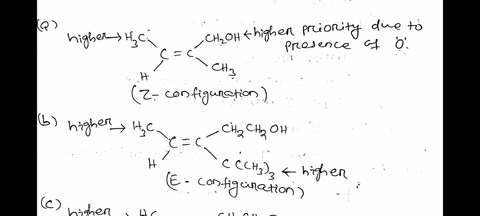 (a) higher → H3C CH2OH ← higher priority due to
C = C presence of 'O'.
H CH3
(Z- configuration)
(b) higher → H3C CH2CH2OH
C = C
H C(CH3)3 ← higher
(E- configuration)
(c)
higher → H3C